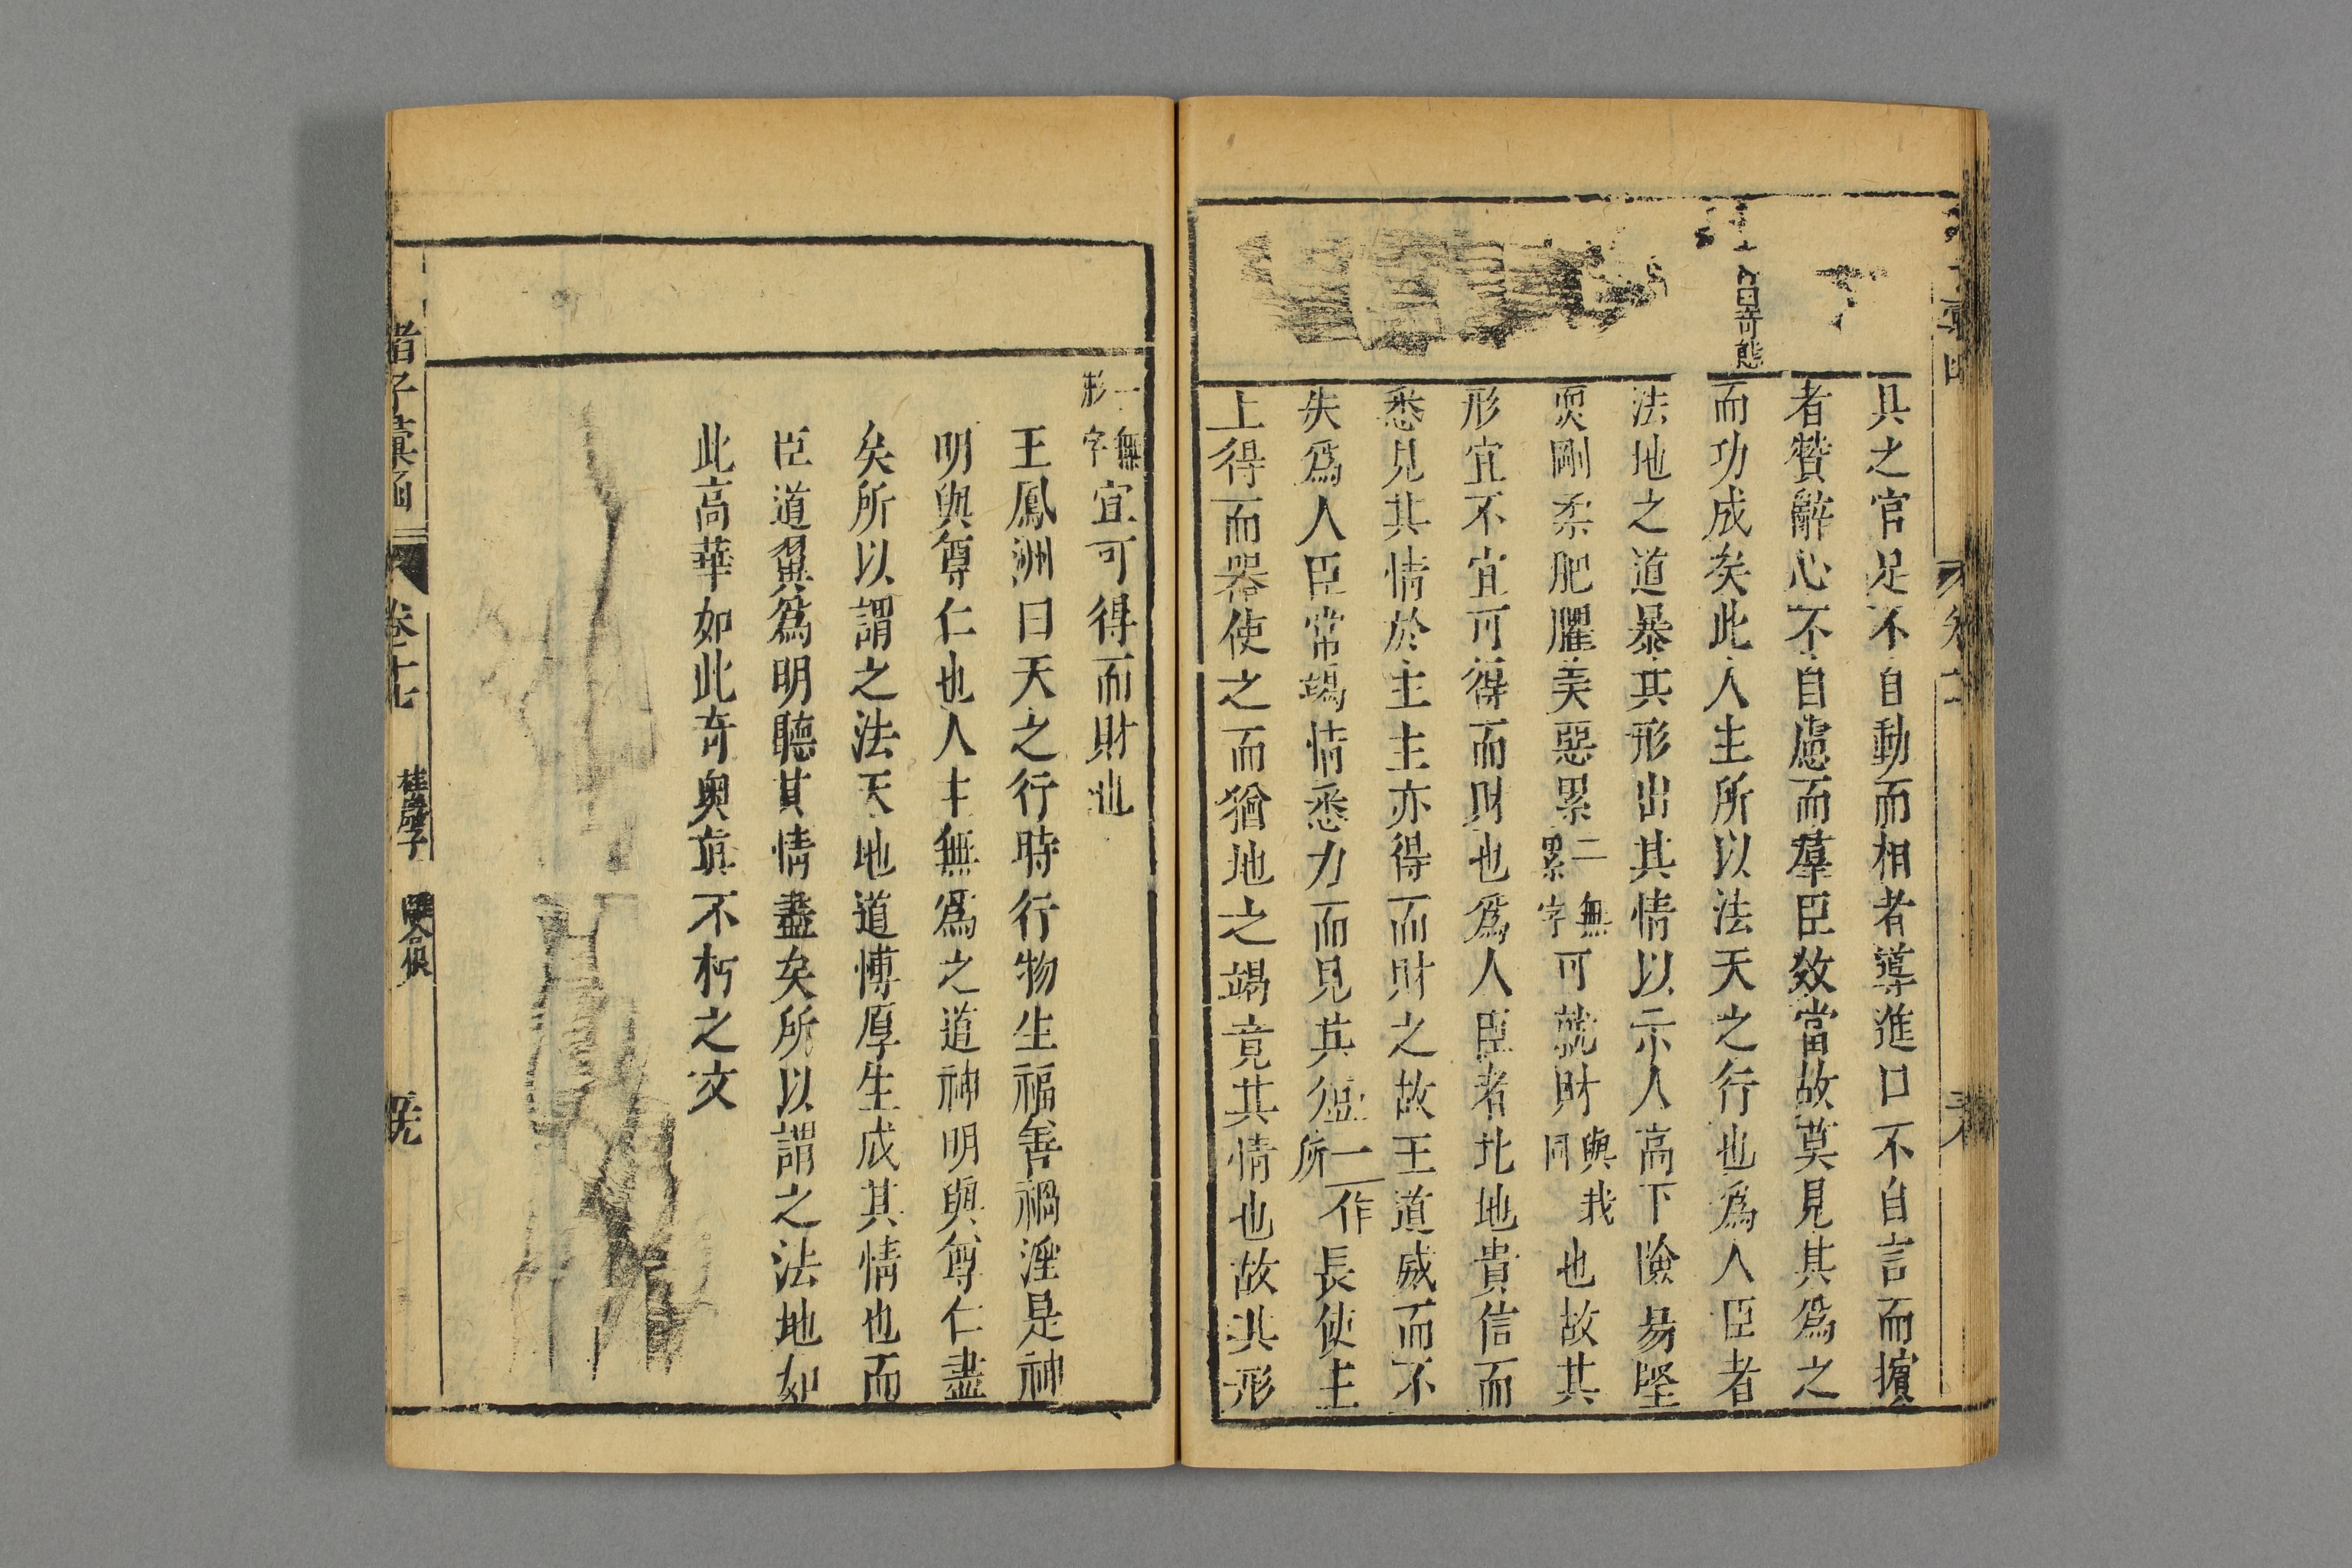 具之官足不自動而相者導進口不自言而擯
者贊辭心不自慮而羣臣效當故莫見其爲之
而功成矣此人主所以法天之行也爲人臣者
法地之道暴其形出其情以示人高下險易堅
耎剛柔肥臞美惡累二無累字可就財與裁同也故其
形宜不宜可得而財也爲人臣者北地貴信而
悉見其情於主主亦得而財之故王道威而不
失爲人臣常竭情悉力而見其短一作所長使主
上得而器使之而猶地之竭竟其情也故其形
奇態
一無形字宜可得而財也
王鳳洲曰天之行時行物生福善禍淫是神
明與尊仁也人主無爲之道神明與尊仁盡
矣所以謂之法天地道博厚生成其情也而
臣道翼爲明聽其情盡矣所以謂之法地如
此高華如此奇奧真不朽之文
諸子彙函
卷十七
桂巖子
離合根